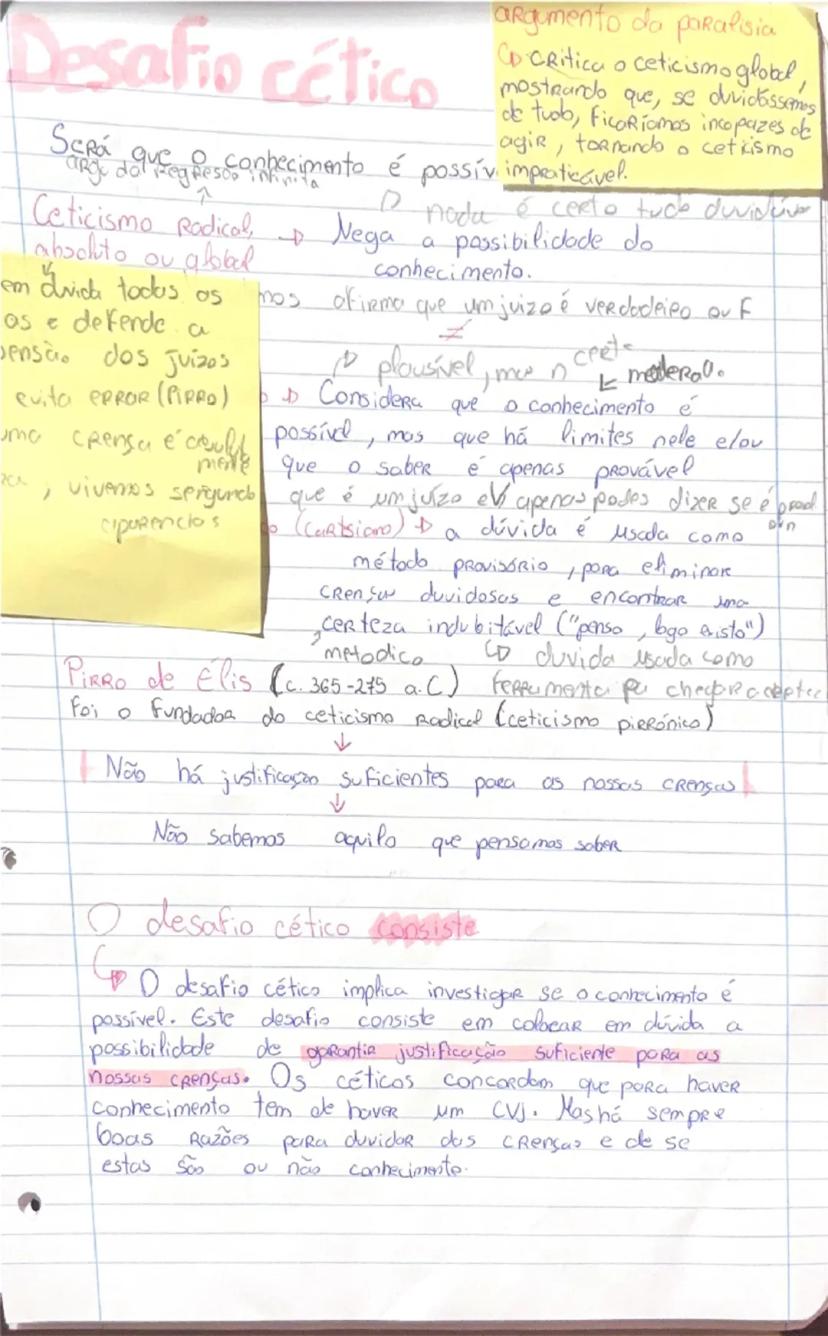 Desafio cético
argumento da paralisia
↳ critica o ceticismo global,
mostrando que, se duvidássemos
de tudo, ficaríamos incapazes de
agir, tornando o ceticismo
impraticável.
Será que o conhecimento é possív
arg. da regressão infinita
nada é certo tudo
Ceticismo Radical, → Nega a possibilidade do
absoluto ou global
conhecimento.
em dúvida todos os
os e defende a
pensão dos juízos
evita errar (PIRRO)
uma crença é
mente
, vivemos segundo
aparencias
mos afirma que um juízo é verdadeiro ou F
≠
plausível, mas n certo
moderado.
→ Considera que o conhecimento é
possível, mas que há limites nele e/ou
que o saber é apenas provável
que é um juízo apenas podes dizer se é
o (cartsiano) → a dúvida é usada como
método provisório, para eliminar
crenças duvidosas e encontrar uma
certeza indubitável ("penso, logo existo")
metodico ↳ duvida usada como
ferramenta pa chegar a
Pirro de Élis (c. 365-275 a.C)
foi o fundador do ceticismo radical (ceticismo pirrónico)
↓
Não há justificação suficientes para as nossas crenças
↓
Não sabemos aquilo que pensamos saber
O desafio cético consiste
↳ O desafio cético implica investigar se o conhecimento é
possível. Este desafio consiste em colocar em dúvida a
possibilidade de garantir justificação suficiente para as
nossas crenças. Os céticos concordam que para haver
conhecimento tem de haver um CVJ. Mas há sempre
boas razões para duvidar das crenças e de se
estas são ou não conhecimento.